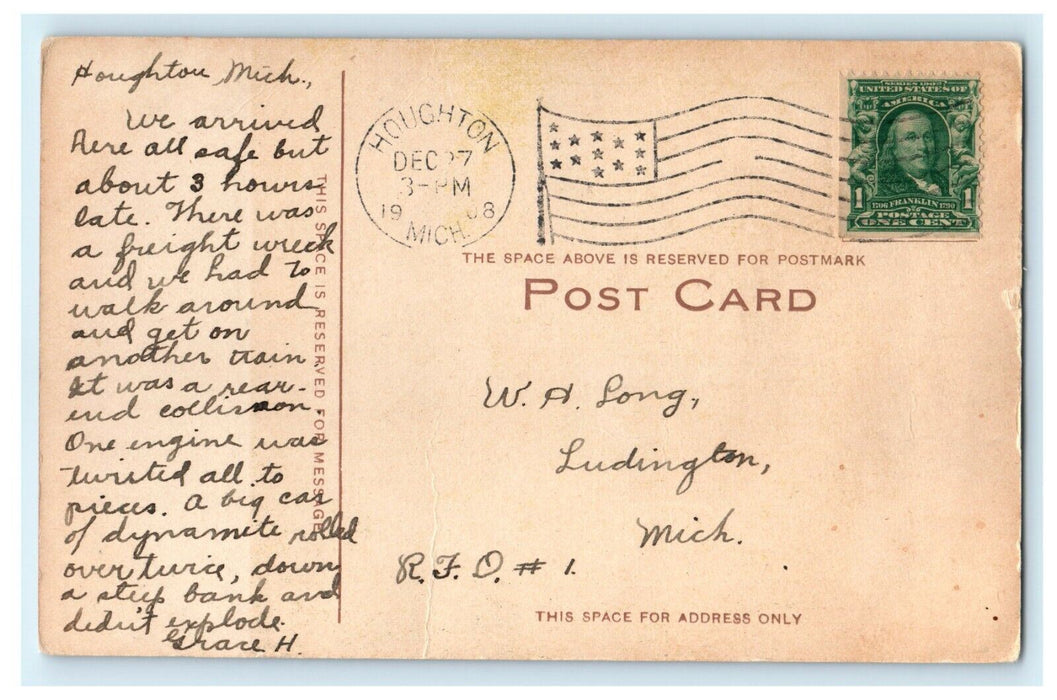 Houghton Mich.,
We arrived
here all safe but
about 3 hours
late. There was
a freight wreck
and we had to
walk around
and get on
another train
It was a rear-
end collision.
One engine was
twisted all to
pieces. A big car
of dynamite rolled
over twice, down
a steep bank and
didn't explode.
Grace H.
THIS SPACE IS RESERVED FOR MESSAGE
HOUGHTON
DEC 27
3-PM
1908
MICH.
SERIES 1902
UNITED STATES OF
AMERICA
1 1
1706 FRANKLIN 1790
POSTAGE
ONE CENT
THE SPACE ABOVE IS RESERVED FOR POSTMARK
POST CARD
W. H. Long,
Ludington,
Mich.
R.F.D. # 1.
THIS SPACE FOR ADDRESS ONLY